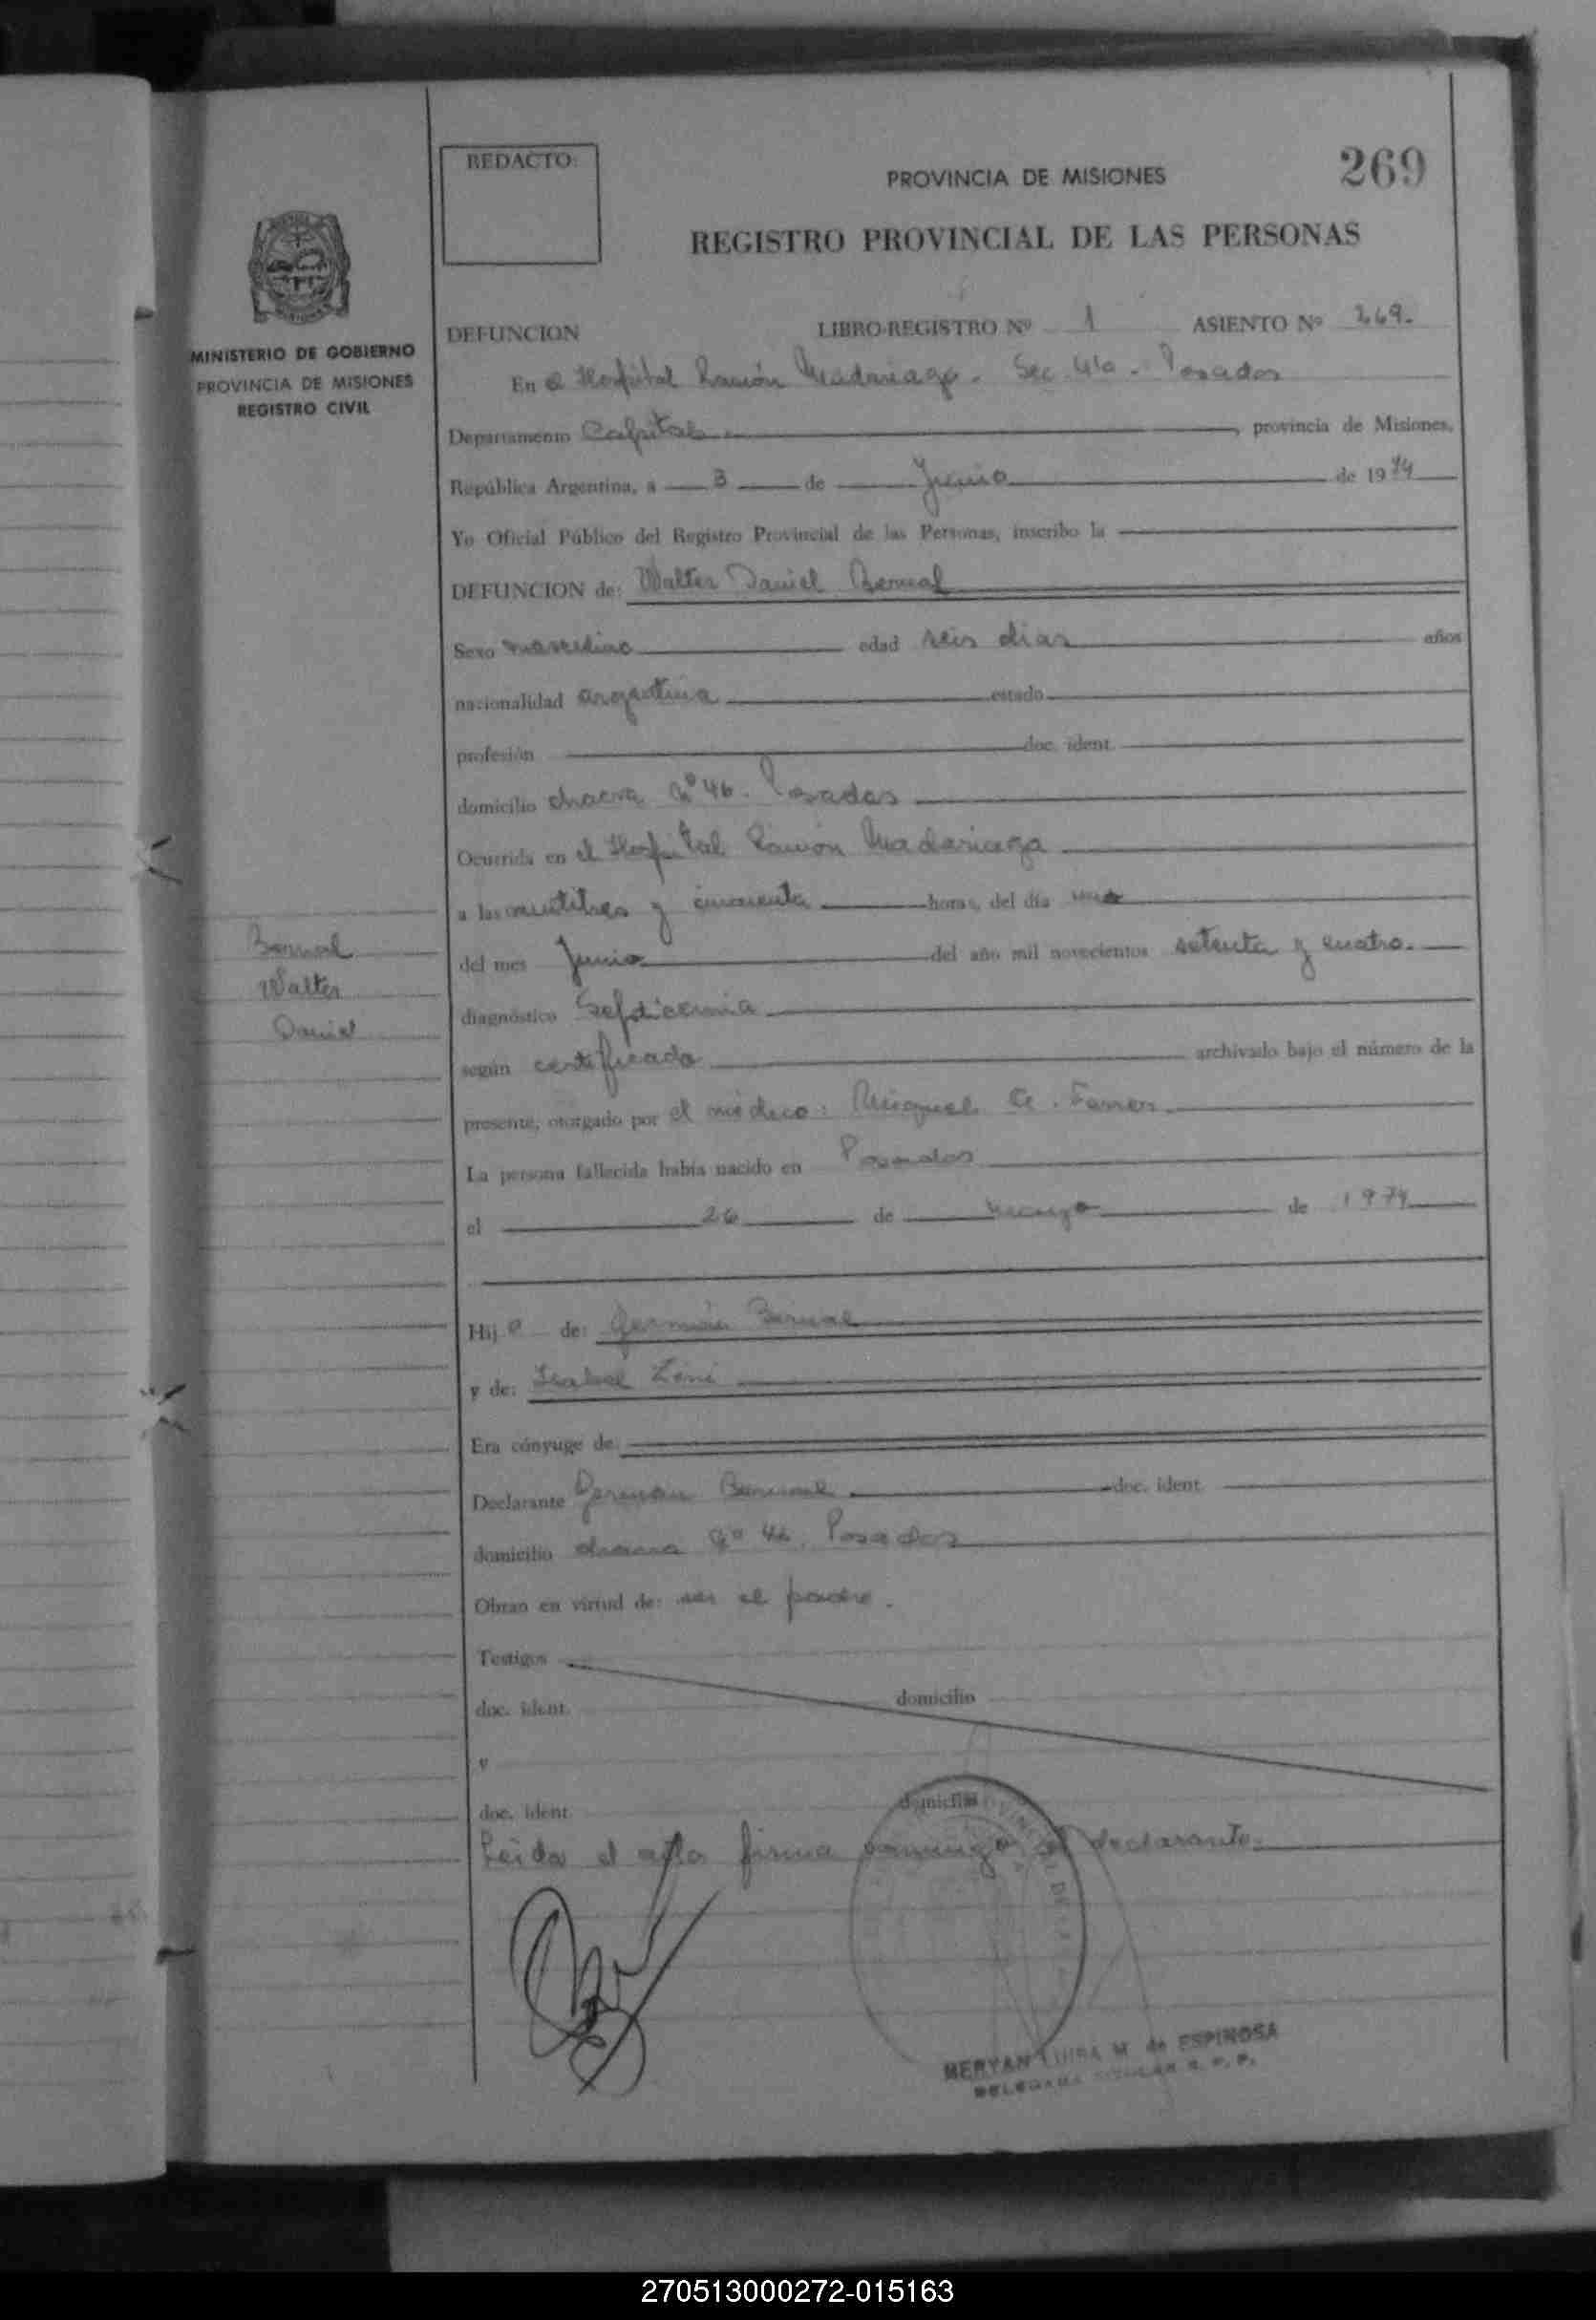 REDACTO:
PROVINCIA DE MISIONES
269
REGISTRO PROVINCIAL DE LAS PERSONAS
MINISTERIO DE GOBIERNO
PROVINCIA DE MISIONES
REGISTRO CIVIL
DEFUNCION LIBRO-REGISTRO Nº 1 ASIENTO Nº 269.
En el Hospital Ramón Madariaga. Sec 4ta. Posadas
Departamento Capital, provincia de Misiones,
República Argentina, a 3 de Junio de 1974
Yo Oficial Público del Registro Provincial de las Personas, inscribo la
DEFUNCION de: Walter Daniel Bernal
Sexo masculino edad seis dias años
nacionalidad argentina estado
profesión doc. ident.
domicilio chacra Nº 46. Posadas
Ocurrida en el Hospital Ramón Madariaga
a las veintitres y cincuenta horas, del día uno
del mes Junio del año mil novecientos setenta y cuatro.
Bernal
Walter
Daniel
diagnóstico Septicemia
según certificado archivado bajo el número de la
presente, otorgado por el médico: Miguel A. Ferrer.
La persona fallecida había nacido en Posadas
el 26 de mayo de 1974
Hijo de: Germán Bernal
y de: Isabel
Era cónyuge de:
Declarante German Bernal doc. ident.
domicilio chacra Nº 46. Posadas
Obran en virtud de: ser el padre.
Testigos
doc. ident. domicilio
y
doc. ident. domicilio
Leida el acta firma conmigo el declarante.
MERYAN LUISA M. de ESPINOSA
DELEGADA TITULAR R. P. P.
270513000272-015163